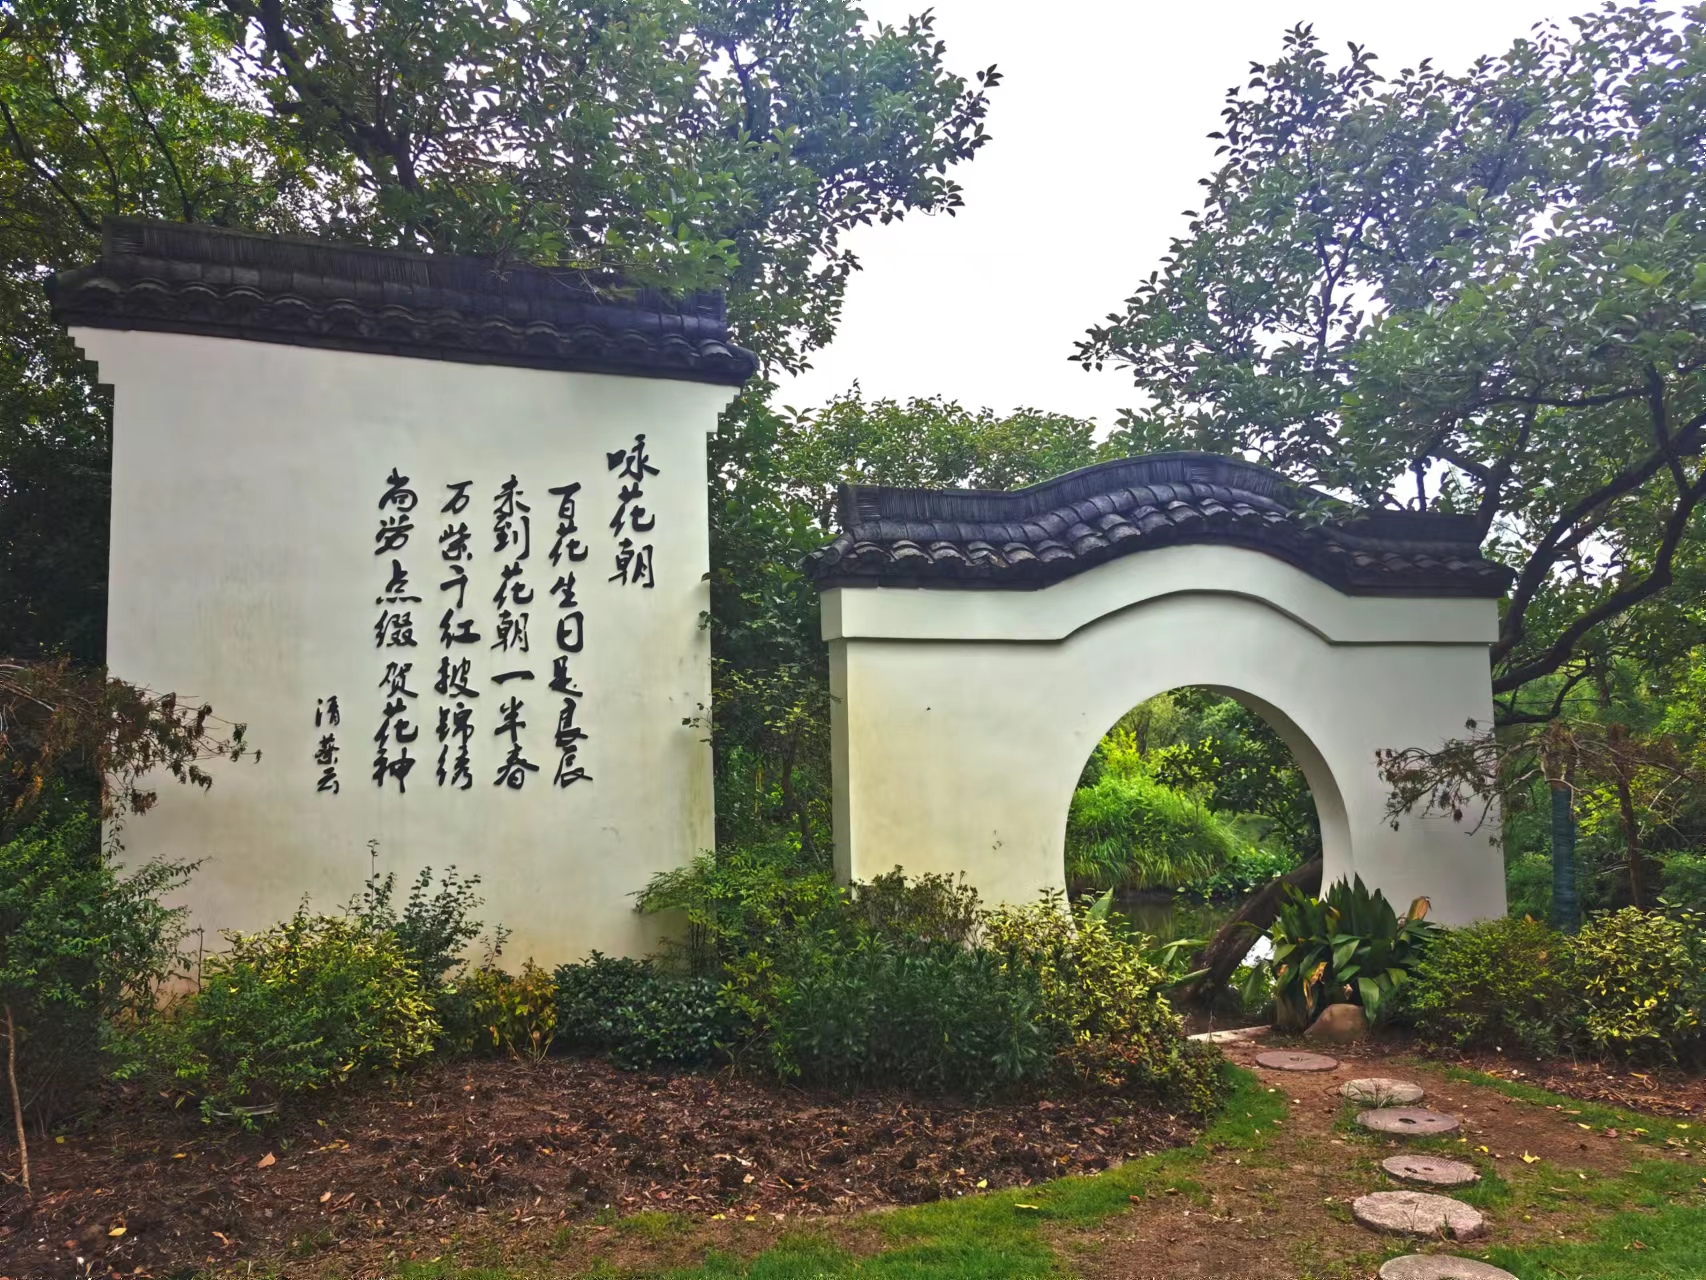 咏花朝
百花生日是良辰
未到花朝一半春
万紫千红披锦绣
尚劳点缀贺花神
清 蔡云